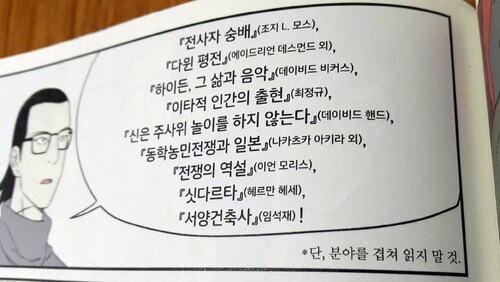 『전사자 숭배』(조지 L. 모스),
『다윈 평전』(에이드리언 데스먼드 외),
『하이든, 그 삶과 음악』(데이비드 비커스),
『이타적 인간의 출현』(최정규),
『신은 주사위 놀이를 하지 않는다』(데이비드 핸드),
『동학농민전쟁과 일본』(나카츠카 아키라 외),
『전쟁의 역설』(이언 모리스),
『싯다르타』(헤르만 헤세),
『서양건축사』(임석재) !
*단, 분야를 겹쳐 읽지 말 것.